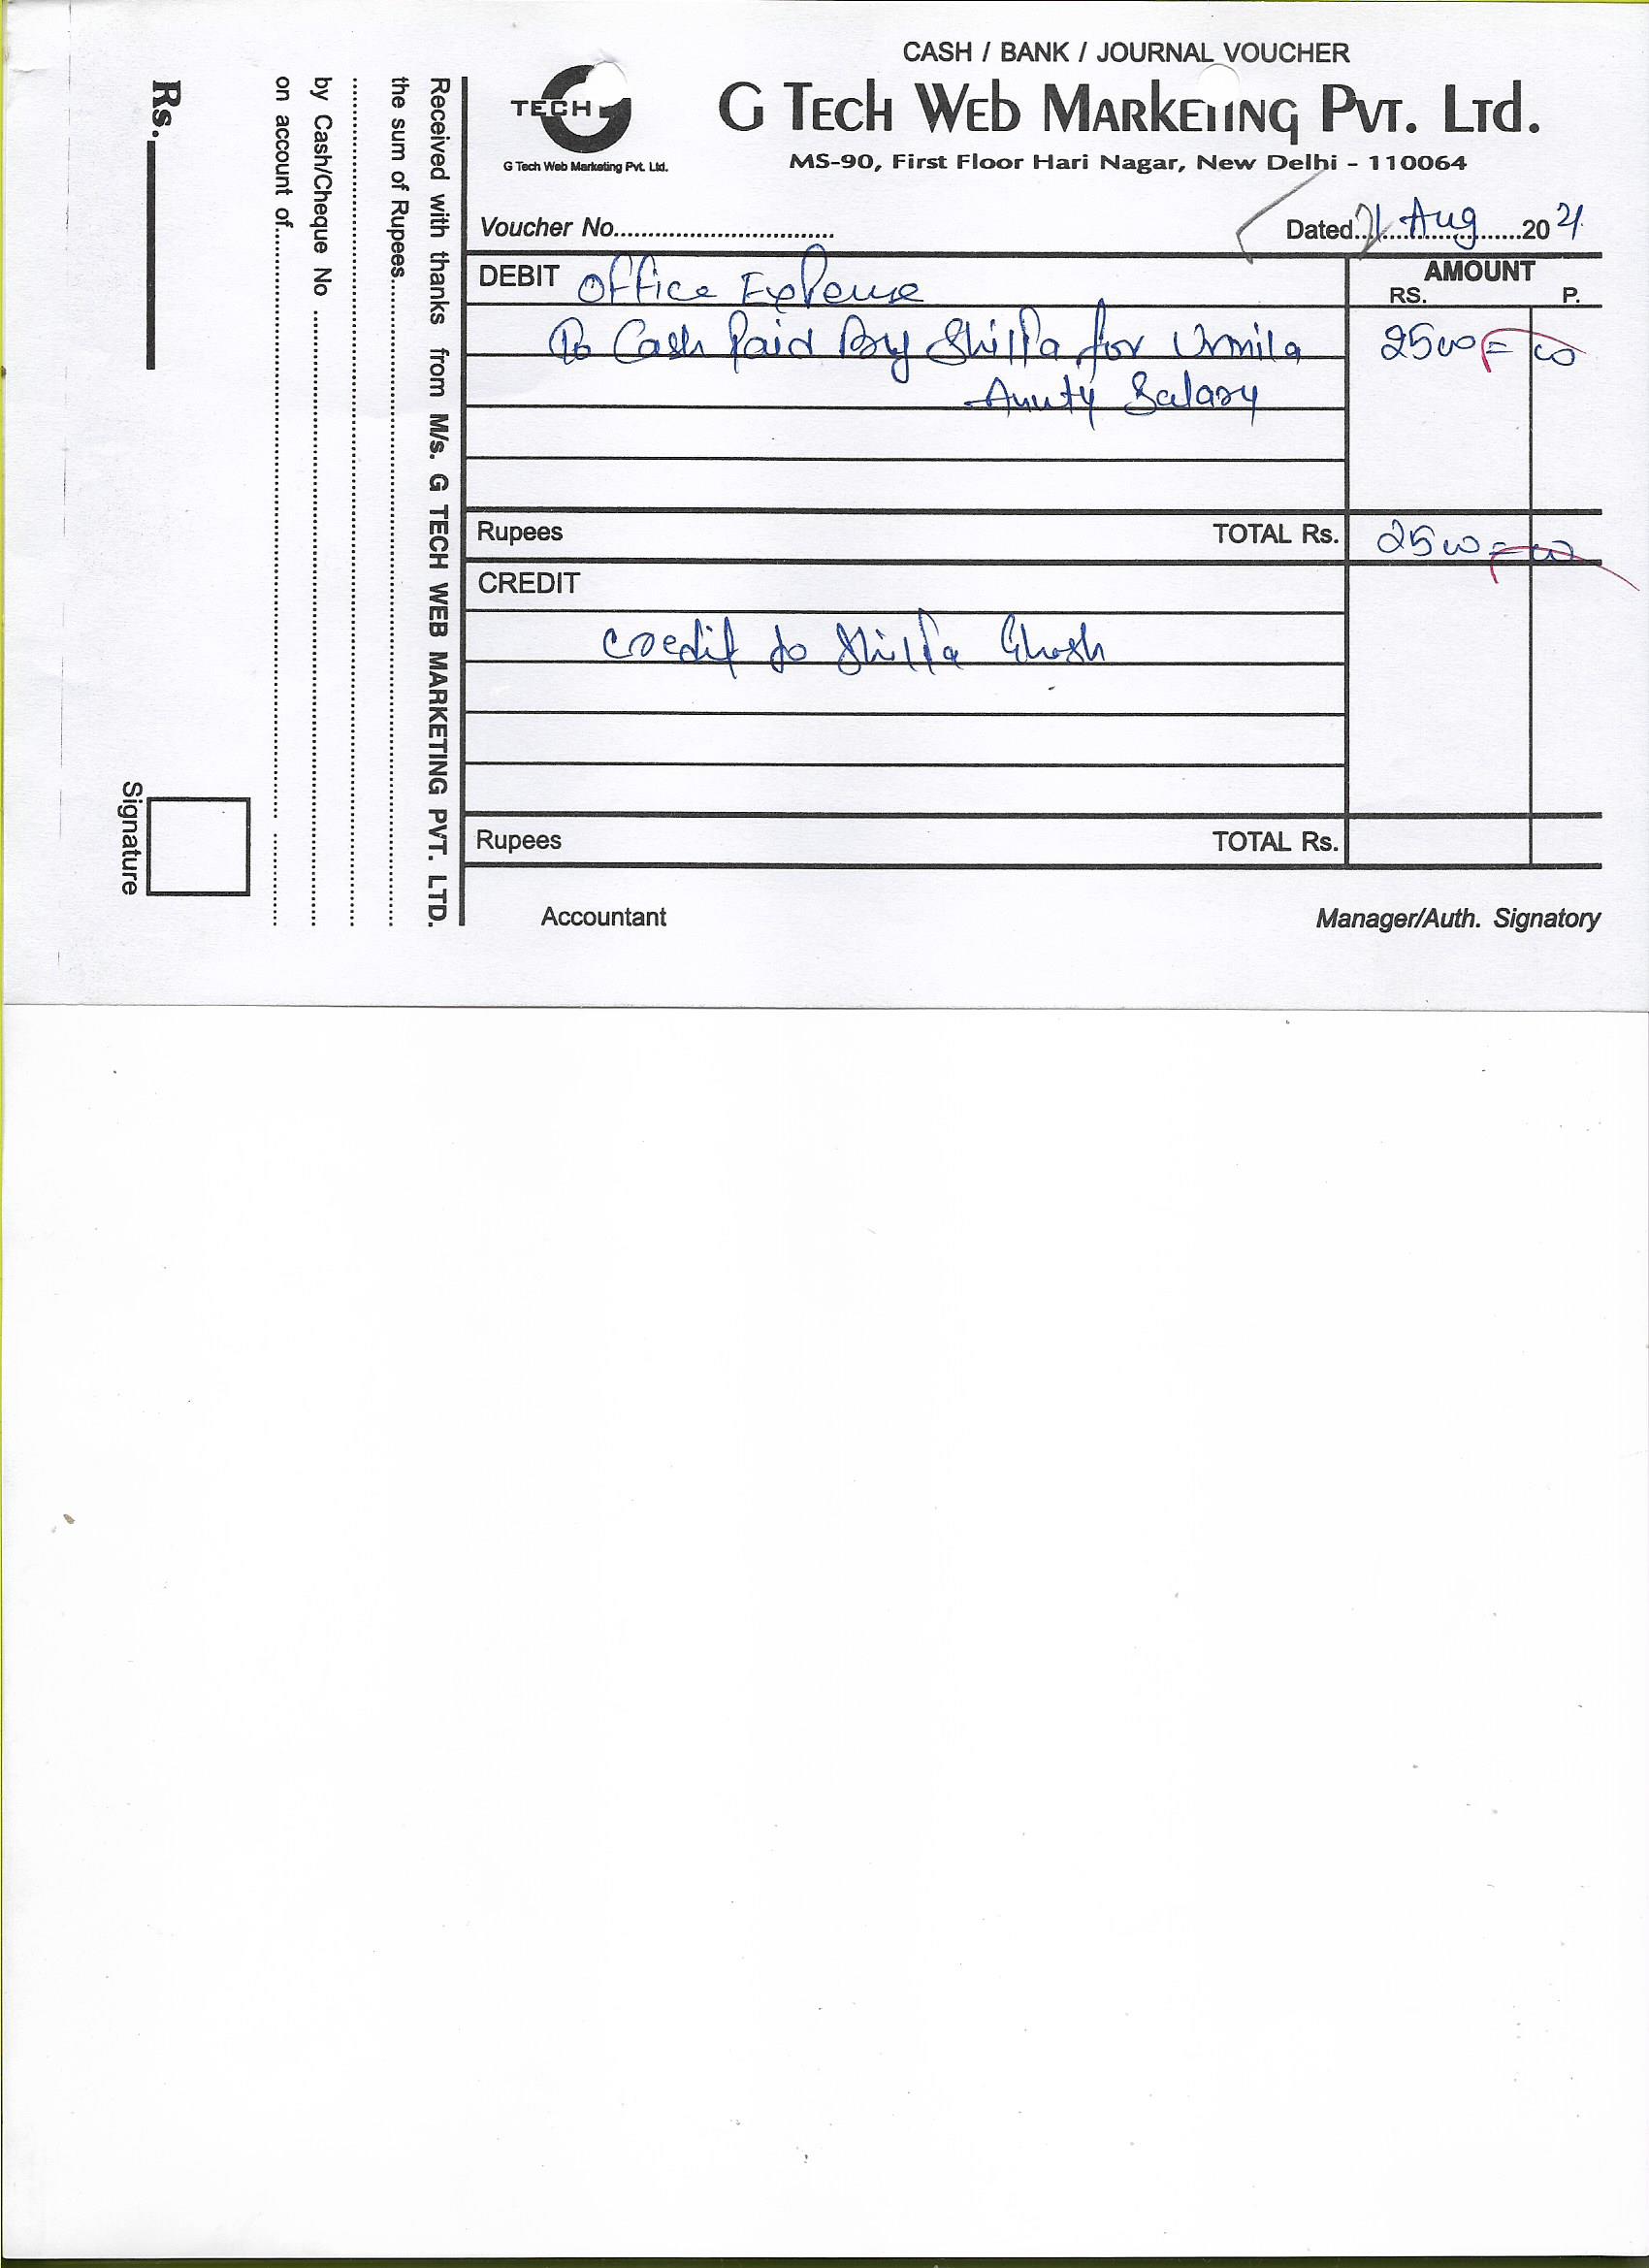 CASH / BANK / JOURNAL VOUCHER
TECH
G Tech Web Marketing Pvt. Ltd.
G Tech Web Marketing Pvt. Ltd.
MS-90, First Floor Hari Nagar, New Delhi - 110064
Voucher No................................
Dated.................... Aug ......2021
DEBIT Office Expense
AMOUNT
RS. P.
To Cash Paid By Shilpa for Urmila 2500=00
Aunty Salary
Rupees TOTAL Rs. 2500=00
CREDIT
Credit to Shilpa Ghosh
Rupees TOTAL Rs.
Accountant Manager/Auth. Signatory
Received with thanks from M/s. G TECH WEB MARKETING PVT. LTD.
the sum of Rupees........................
by Cash/Cheque No ........................
on account of........................
Rs.
Signature